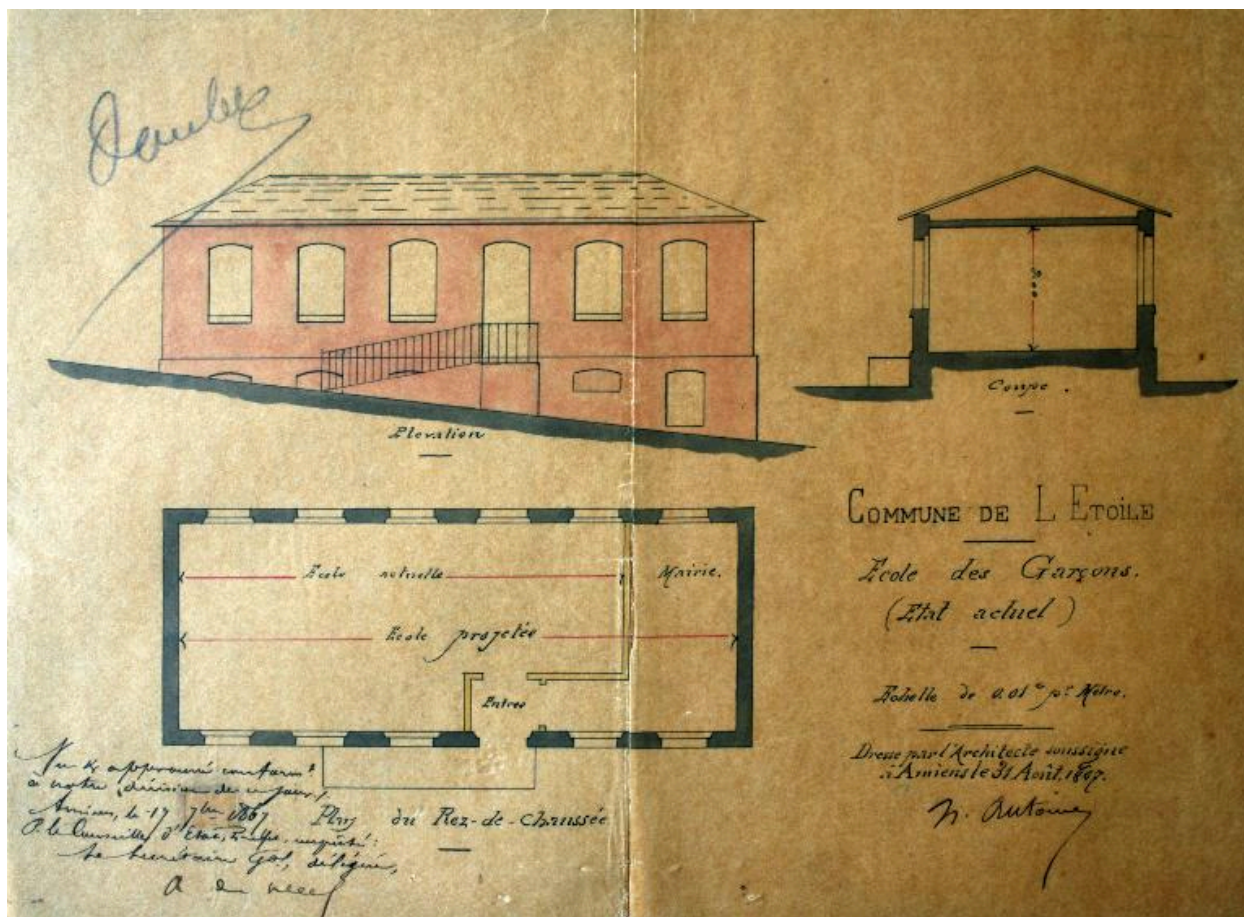 Double
Elevation
3.00
Coupe.
COMMUNE DE L ETOILE
Ecole des Garçons.
(Etat actuel)
Echelle de 0.01ᶜ pʳ Mètre.
Dressé par l'Architecte soussigné
à Amiens le 31 Août. 1867.
Antoine
Ecole actuelle
Mairie.
Ecole projetée
Entrée
Plan du Rez-de-Chaussée
Vu & approuvé conformᵗ
à notre décision de ce jour,
Amiens, le 17 7bre 1867
P. le Conseiller d'Etat, Préfet, empêché:
Le Secrétaire Gᵃˡ, délégué,